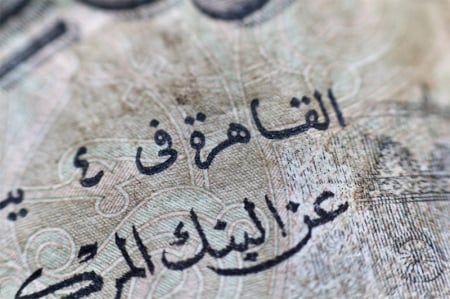 القاهرة فى ٤
عن البنك